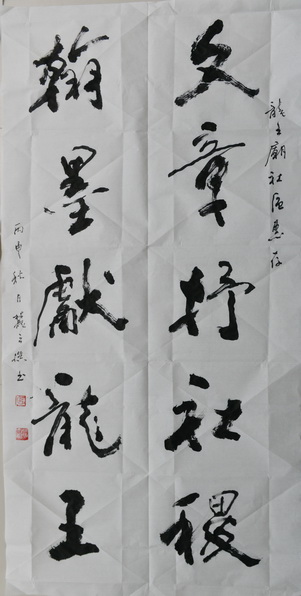 龙王廟社區惠存
文章抒社稷
翰墨獻龍王
丙申秋月龍三撰书